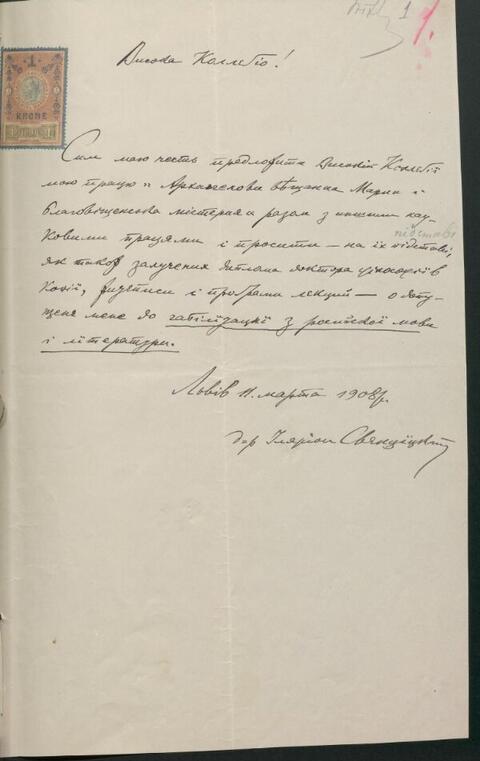 1
1
KRONE
Висока Коллєґіо!
Сим маю честь предложити Високій Коллєґії
мою працю „Архангелови вѣщання Марии і
благовіщенська містерия" разом з иншими нау-
ковими працями і просити — на їх підставі,
підставі
як також залучених диплома доктора фільософії в
копії, життєписи і програми лекций — о допу-
щенє мене до габілітациї з росийскої мови
і літератури.
Львів 11. марта 1908 р.
д-р Іляріон Свєнціцкий